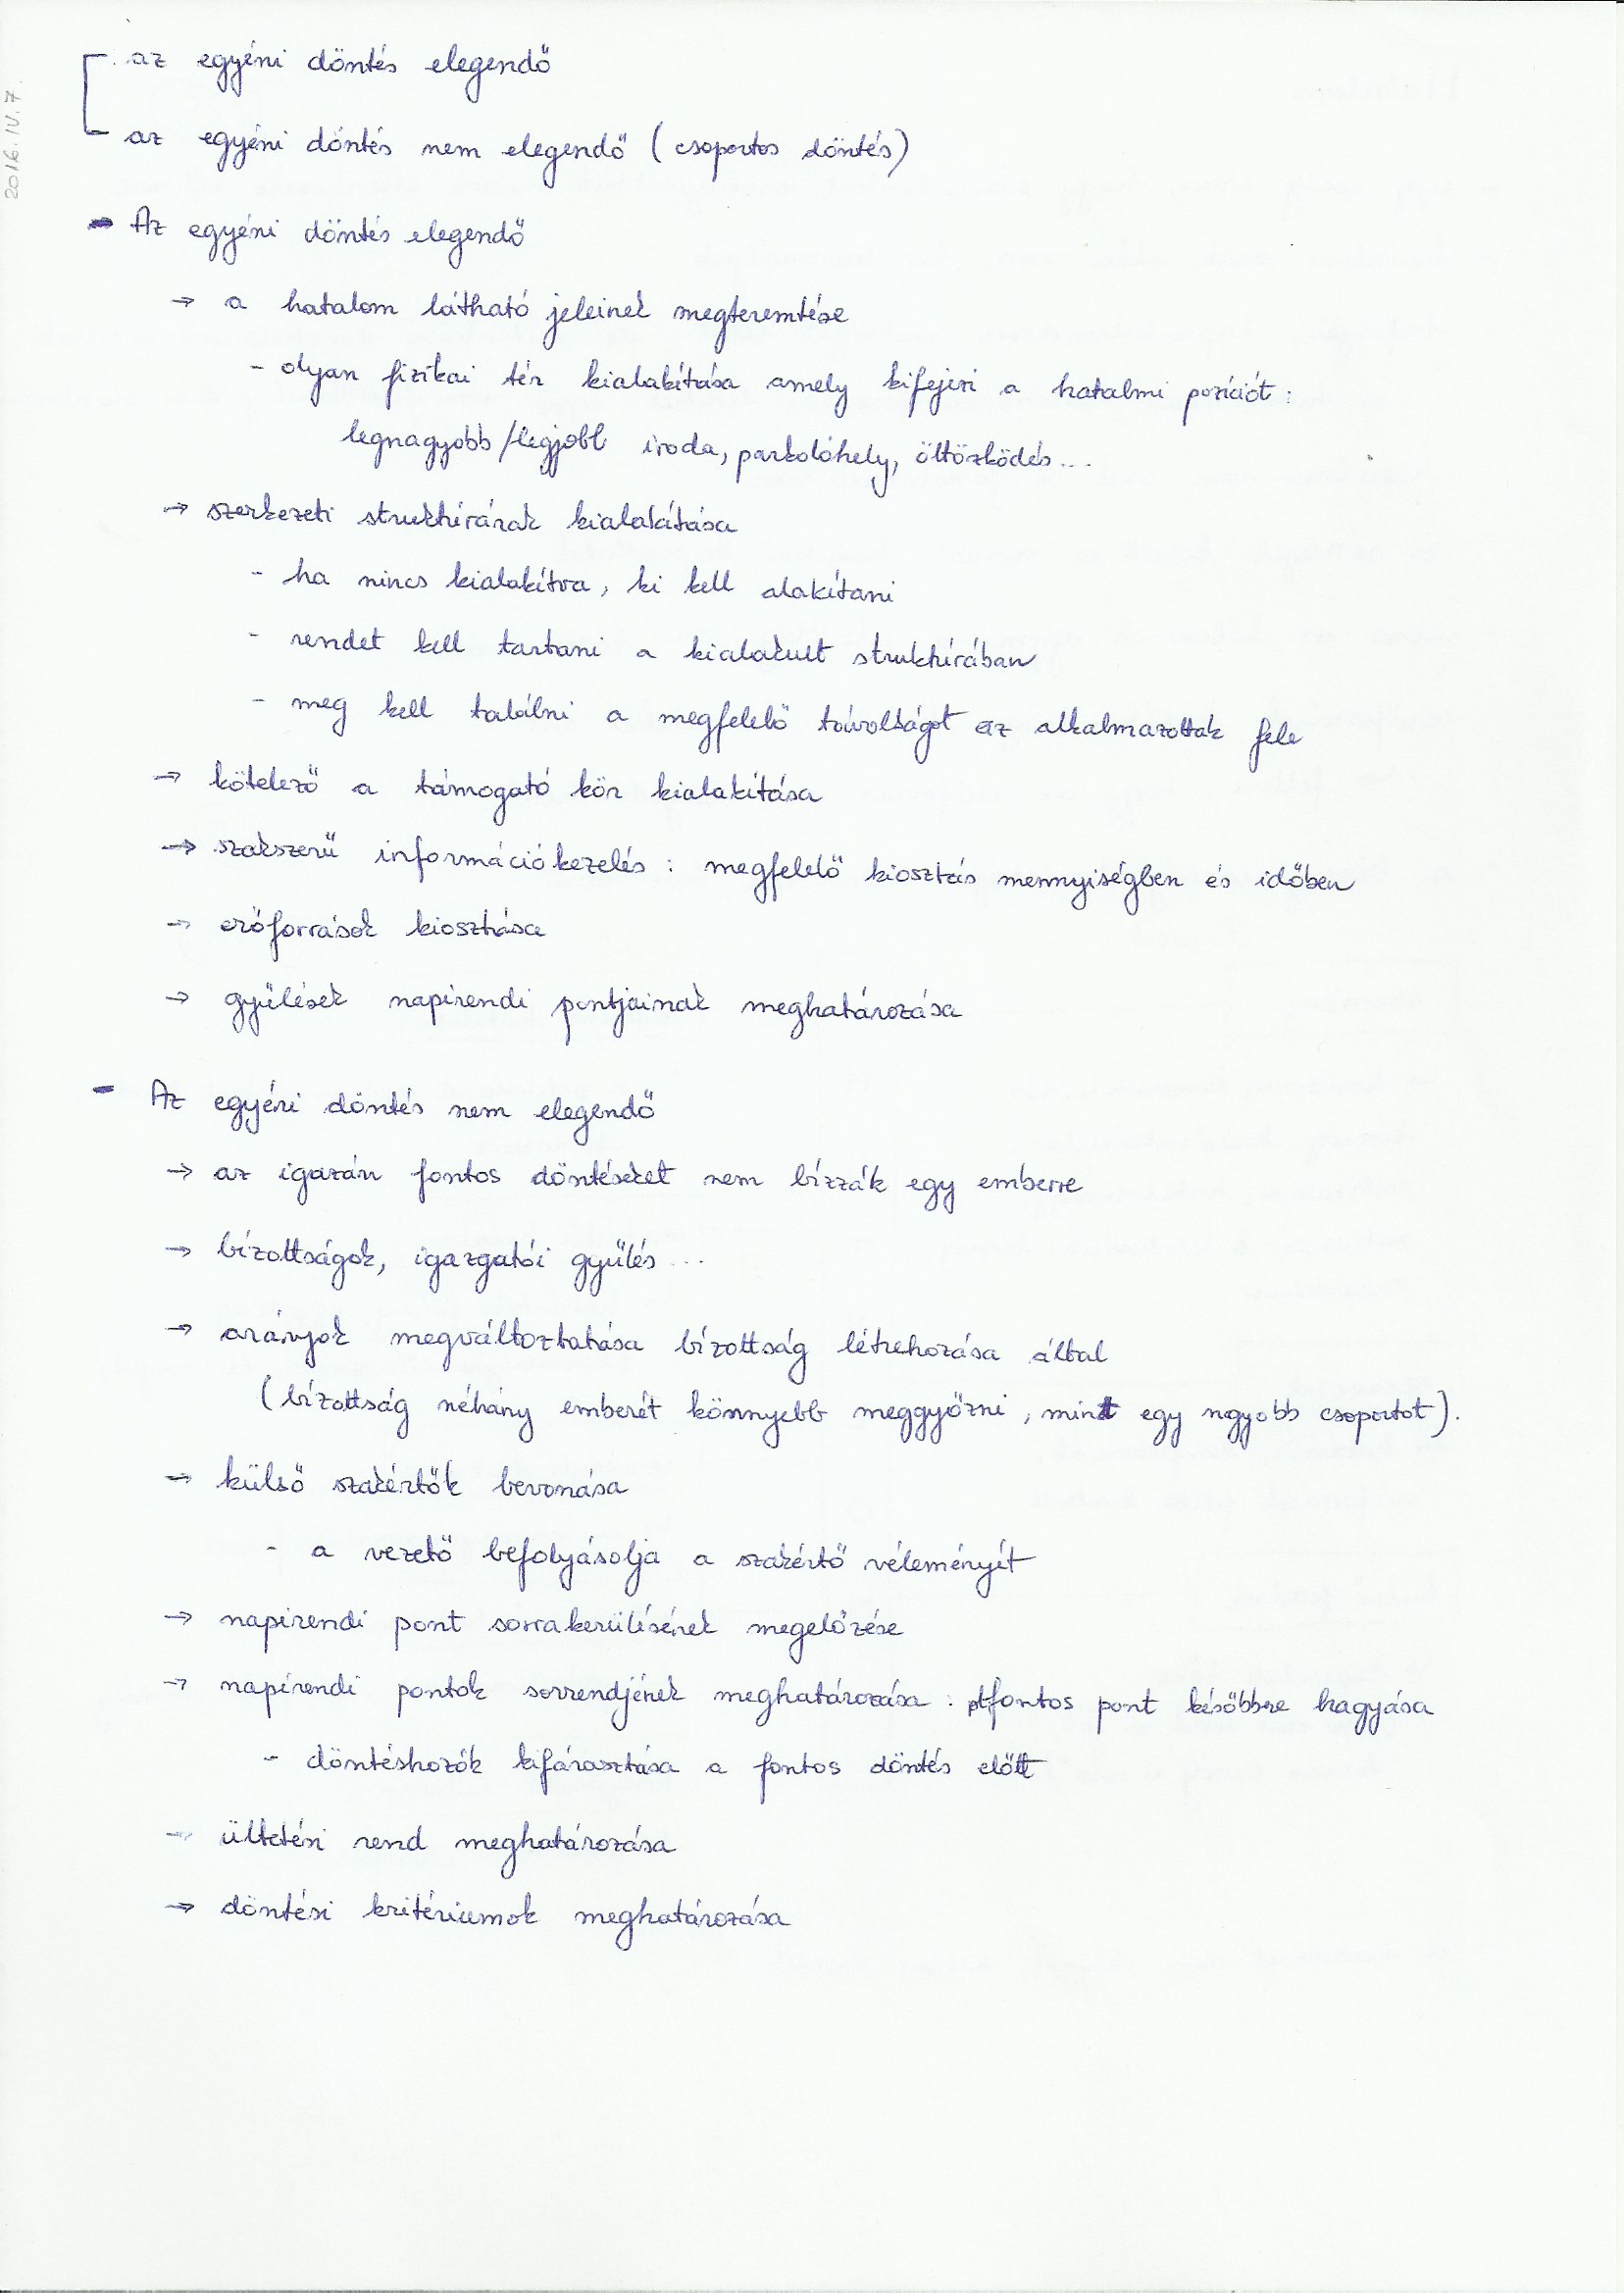 2016. IV. 7.
az egyéni döntés elegendő
az egyéni döntés nem elegendő (csoportos döntés)
- Az egyéni döntés elegendő
→ a hatalom látható jeleinek megteremtése
- olyan fizikai tér kialakítása amely kifejezi a hatalmi pozíciót:
legnagyobb/legjobb iroda, parkolóhely, öltözködés...
→ szerkezeti struktúrának kialakítása
- ha nincs kialakítva, ki kell alakítani
- rendet kell tartani a kialakult struktúrában
- meg kell találni a megfelelő távolságot az alkalmazottak fele
→ kötelező a támogató kör kialakítása
→ szakszerű információkezelés: megfelelő kiosztás mennyiségben és időben
→ erőforrások kiosztása
→ gyűlések napirendi pontjainak meghatározása
- Az egyéni döntés nem elegendő
→ az igazán fontos döntéseket nem bízzák egy emberre
→ bizottságok, igazgatói gyűlés ...
→ arányok megváltoztatása bizottság létrehozása által
(bizottság néhány emberét könnyebb meggyőzni, mint egy ngyobb csoportot).
→ külső szakértők bevonása
- a vezető befolyásolja a szakértő véleményét
→ napirendi pont sorrakerülésének megelőzése
→ napirendi pontok sorrendjének meghatározása: fontos pont későbbre hagyása
- döntéshozók kifárasztása a fontos döntés előtt
→ ültetési rend meghatározása
→ döntési kritériumok meghatározása